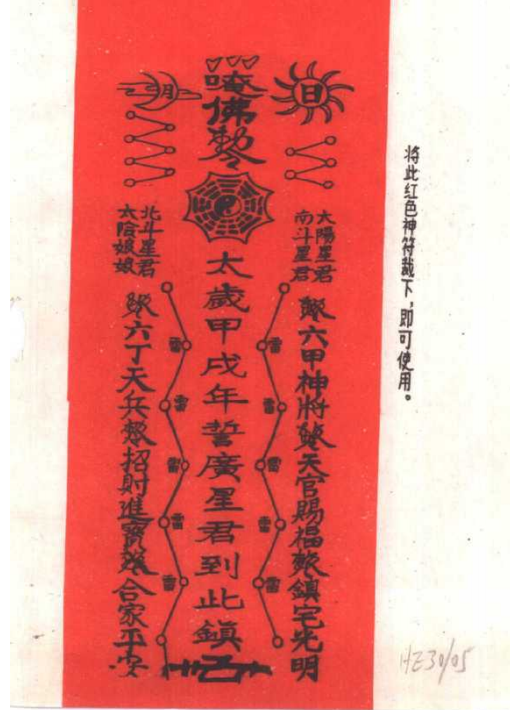 唵佛勅令
日
月
太陽星君
南斗星君
北斗星君
太陰娘娘
太歲甲戌年誓廣星君到此鎮
勅六甲神將勅天官賜福勅鎮宅光明
勅六丁天兵勅招財進寶勅合家平安
雷
雷
雷
雷
雷
雷
雷
雷
雷
雷
将此红色神符裁下,即可使用。
HE30/05